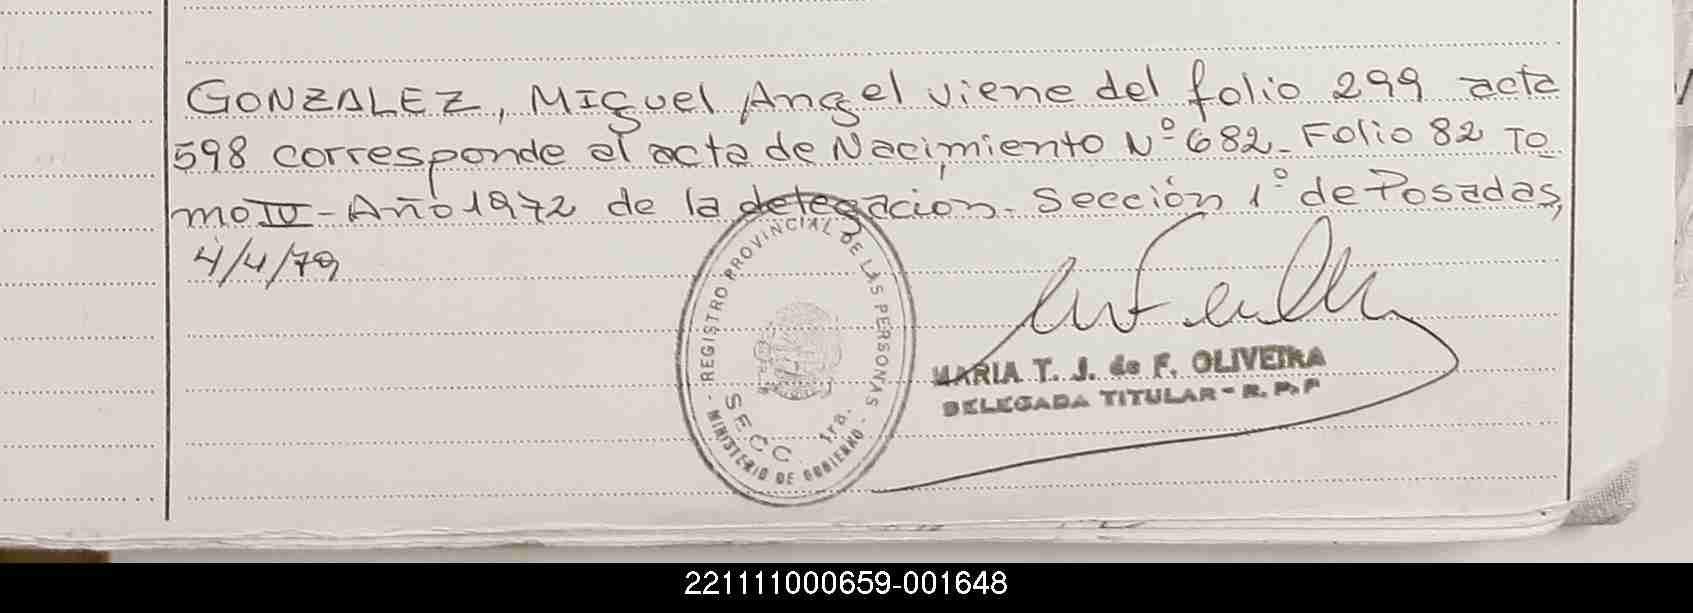 GONZALEZ, Miguel Angel viene del folio 299 acta
598 corresponde al acta de Nacimiento Nº 682_ Folio 82 To
mo IV - Año 1972 de la delegación. Sección 1º de Posadas,
4/4/79
- REGISTRO PROVINCIAL DE LAS PERSONAS -
SECC. 1ra.
MINISTERIO DE GOBIERNO
MARIA T. J. de F. OLIVEIRA
DELEGADA TITULAR - R. P. P
221111000659-001648